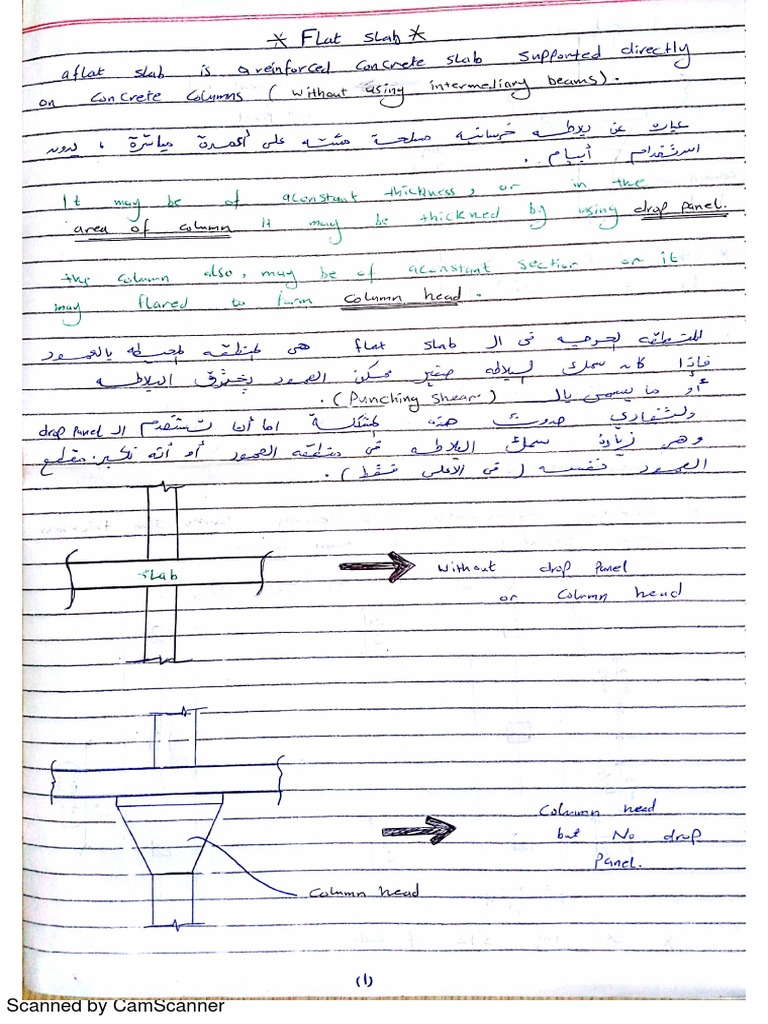 * Flat slab *
a flat slab is a reinforced concrete slab supported directly
on concrete columns (without using intermediary beams).
عبارة عن بلاطه خرسانيه مسلحة مثبته على أعمدة مباشرة ، بدون
استخدام أبيام .
It may be of a constant thickness, or in the
area of column it may be thickned by using drop panel.
the column also, may be of a constant section or it
may flared to form column head.
المنطقه الحرجه فى ال flat slab هى المنطقه المحيطه بالعمود
فاذا كان سمك البلاطه صغير ممكن العمود يخترق البلاطه
أو ما يسمى بال (Punching shear).
ولتفادى حدوث هذه المشكلة اما أننا نستخدم ال drop panel
وهى زيادة سمك البلاطه فى منطقه العمود أو أنه نكبر مقطع
العمود نفسه (فى الأعلى فقط).
slab
without drop panel
or column head
column head
but No drop
panel.
column head
(1)
Scanned by CamScanner